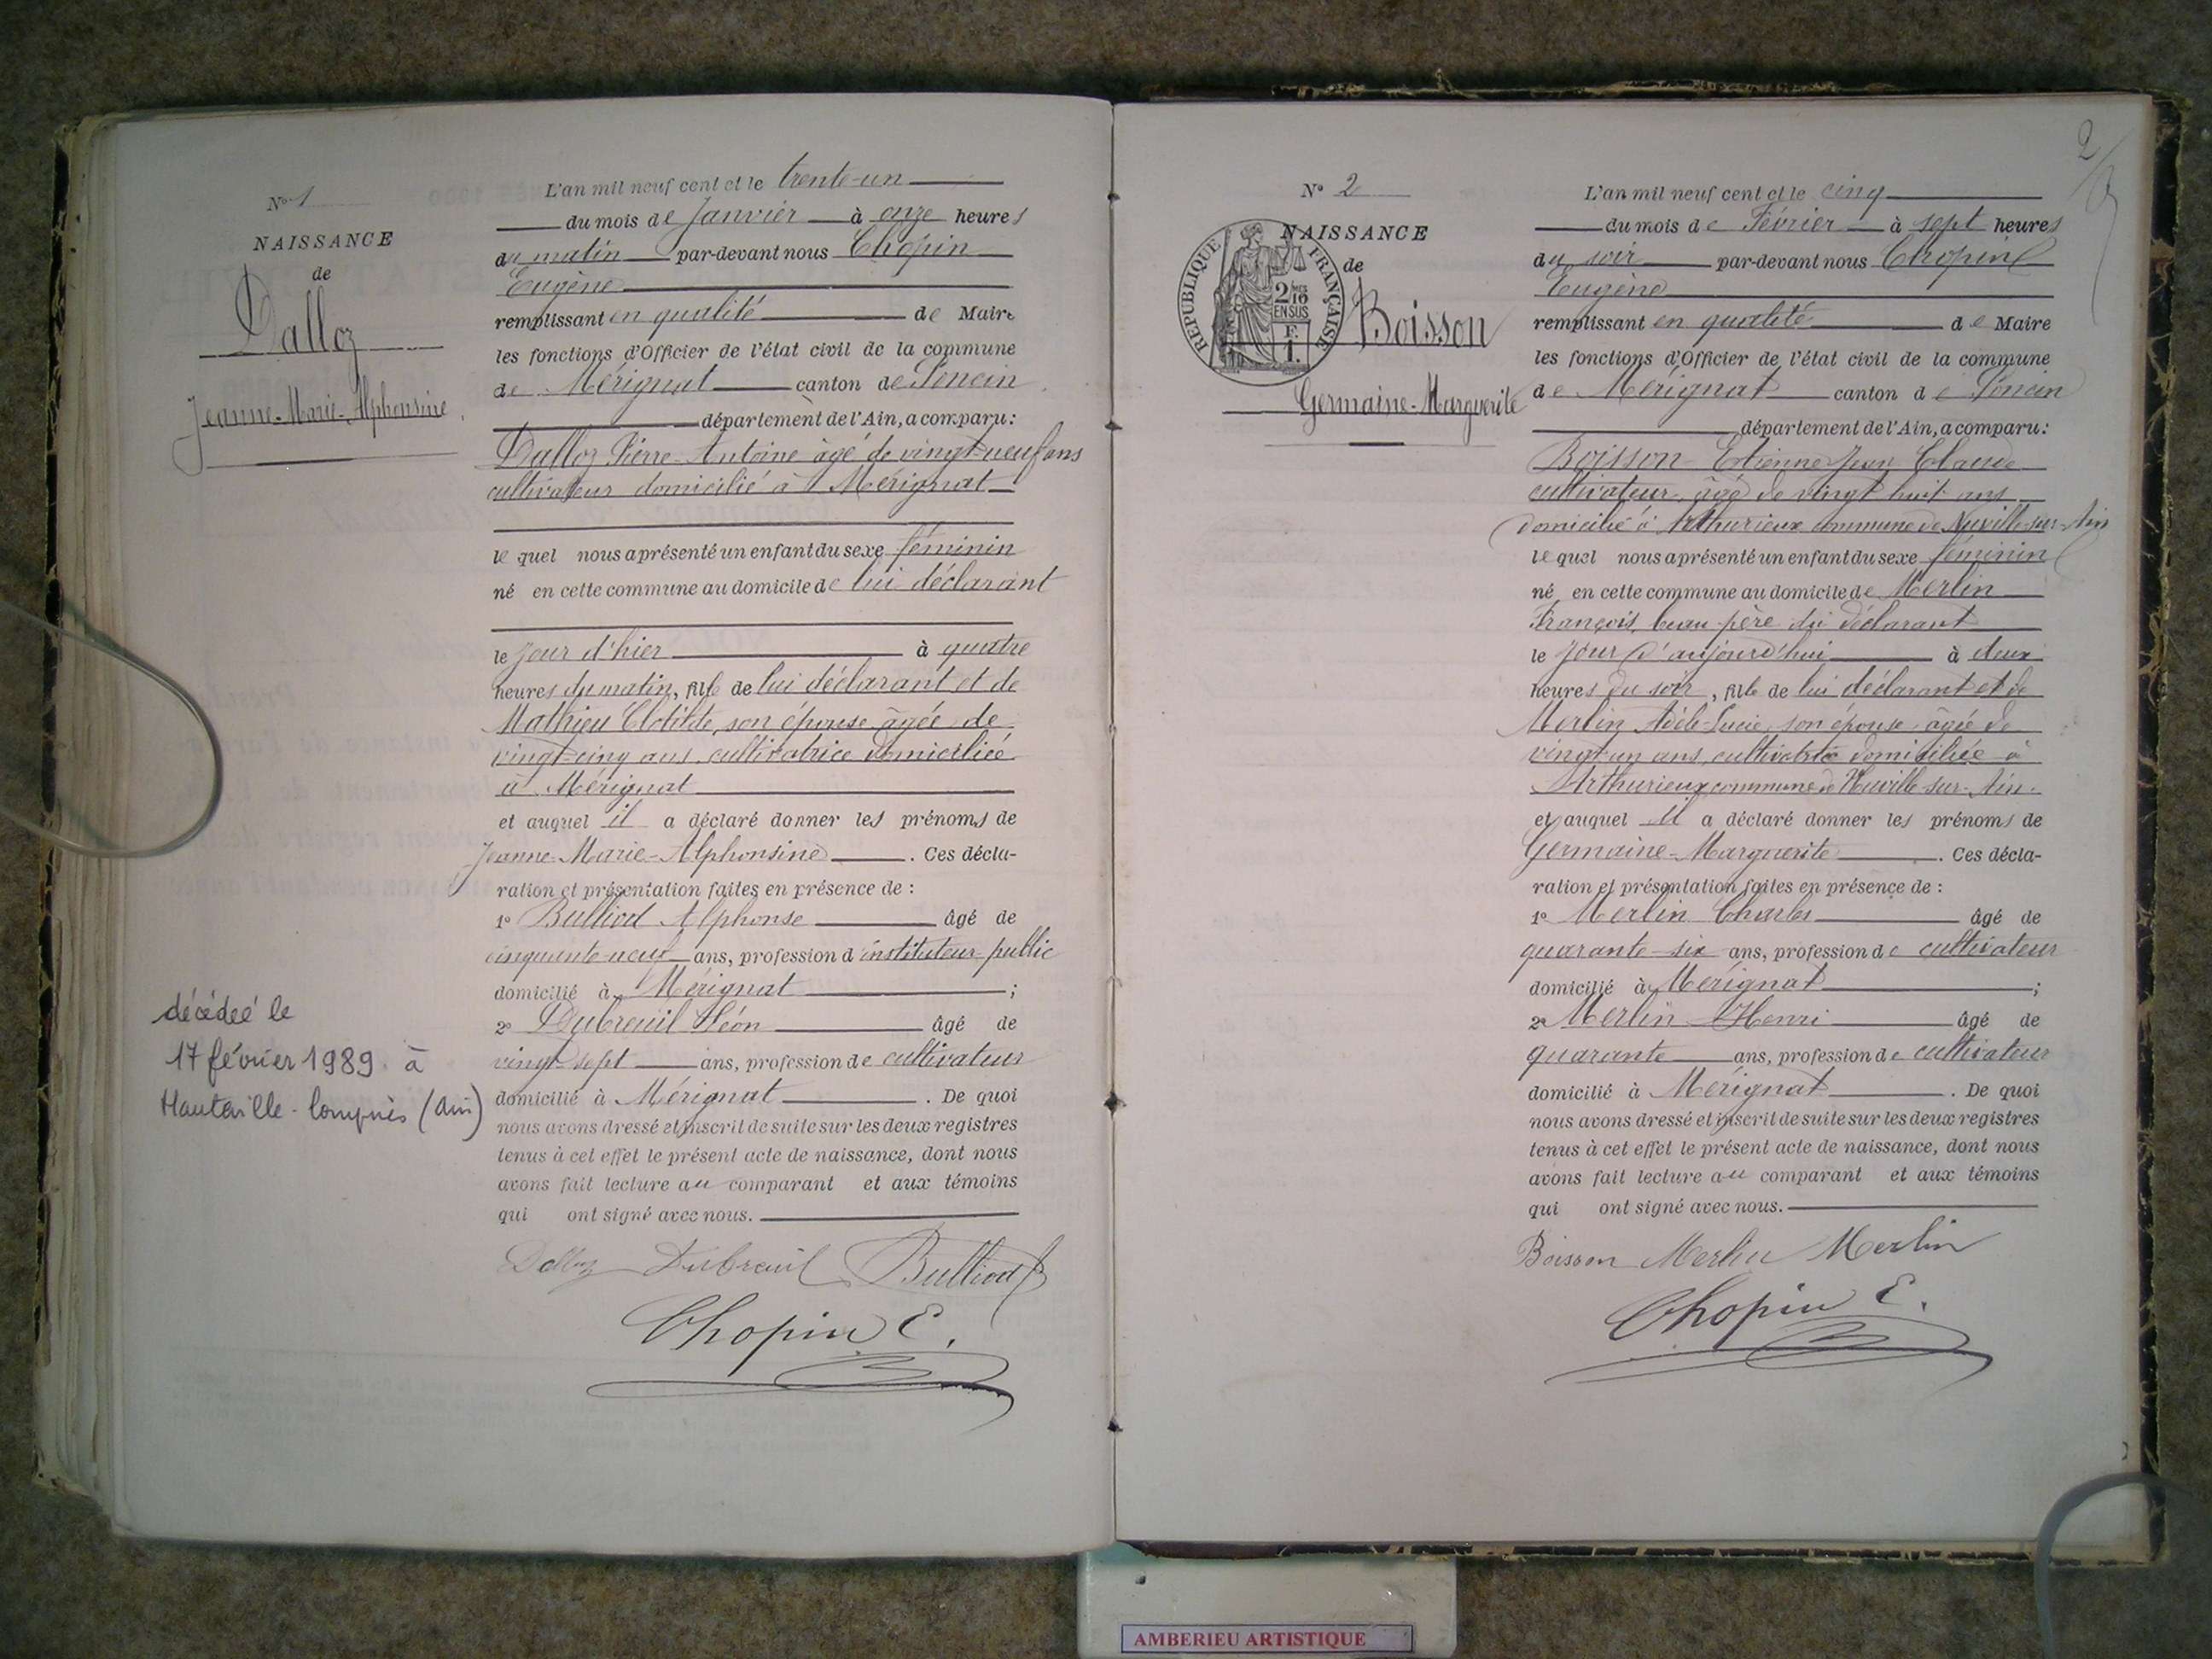 N° 1
NAISSANCE
de
Dalloz
Jeanne-Marie-Alphonsine
décédée le
17 février 1989 à
Hauteville-Lompnès (Ain)
L'an mil neuf cent et le trente-un
du mois de Janvier à onze heures
du matin par-devant nous Chopin
Eugène
remplissant en qualité de Maire
les fonctions d'Officier de l'état civil de la commune
de Mérignat canton de Poncin
département de l'Ain, a comparu:
Dalloz Pierre-Antoine âgé de vingt-neuf ans
cultivateur domicilié à Mérignat
le quel nous a présenté un enfant du sexe féminin
né en cette commune au domicile de lui déclarant
le jour d'hier à quatre
heures du matin, fille de lui déclarant et de
Mathieu Clotilde, son épouse âgée de
vingt-cinq ans, cultivatrice domiciliée
à Mérignat
et auquel il a déclaré donner les prénoms de
Jeanne-Marie-Alphonsine. Ces décla-
ration et présentation faites en présence de :
1° Bulliod Alphonse âgé de
cinquante-neuf ans, profession d'instituteur public
domicilié à Mérignat ;
2° Dubreuil Léon âgé de
vingt-sept ans, profession de cultivateur
domicilié à Mérignat. De quoi
nous avons dressé et inscrit de suite sur les deux registres
tenus à cet effet le présent acte de naissance, dont nous
avons fait lecture au comparant et aux témoins
qui ont signé avec nous.
Dalloz Dubreuil Bulliod
Chopin E.
2
N° 2
NAISSANCE
de
REPUBLIQUE FRANÇAISE
2 MES
10
EN SUS
F.
1.
Boisson
Germaine-Marguerite
L'an mil neuf cent et le cinq
du mois de Février à sept heures
du soir par-devant nous Chopin
Eugène
remplissant en qualité de Maire
les fonctions d'Officier de l'état civil de la commune
de Mérignat canton de Poncin
département de l'Ain, a comparu:
Boisson Etienne Jean Claude
cultivateur âgé de vingt huit ans
domicilié à Arthurieux commune de Neuville-sur-Ain
le quel nous a présenté un enfant du sexe féminin
né en cette commune au domicile de Merlin
François, beau-père du déclarant
le jour d'aujourd'hui à deux
heures du soir, fille de lui déclarant et de
Merlin Adèle-Lucie, son épouse âgée de
vingt-un ans, cultivatrice domiciliée à
Arthurieux commune de Neuville-sur-Ain.
et auquel il a déclaré donner les prénoms de
Germaine-Marguerite. Ces décla-
ration et présentation faites en présence de :
1° Merlin Charles âgé de
quarante-six ans, profession de cultivateur
domicilié à Mérignat ;
2° Merlin Henri âgé de
quarante ans, profession de cultivateur
domicilié à Mérignat. De quoi
nous avons dressé et inscrit de suite sur les deux registres
tenus à cet effet le présent acte de naissance, dont nous
avons fait lecture au comparant et aux témoins
qui ont signé avec nous.
Boisson Merlin Merlin
Chopin E.
AMBERIEU ARTISTIQUE